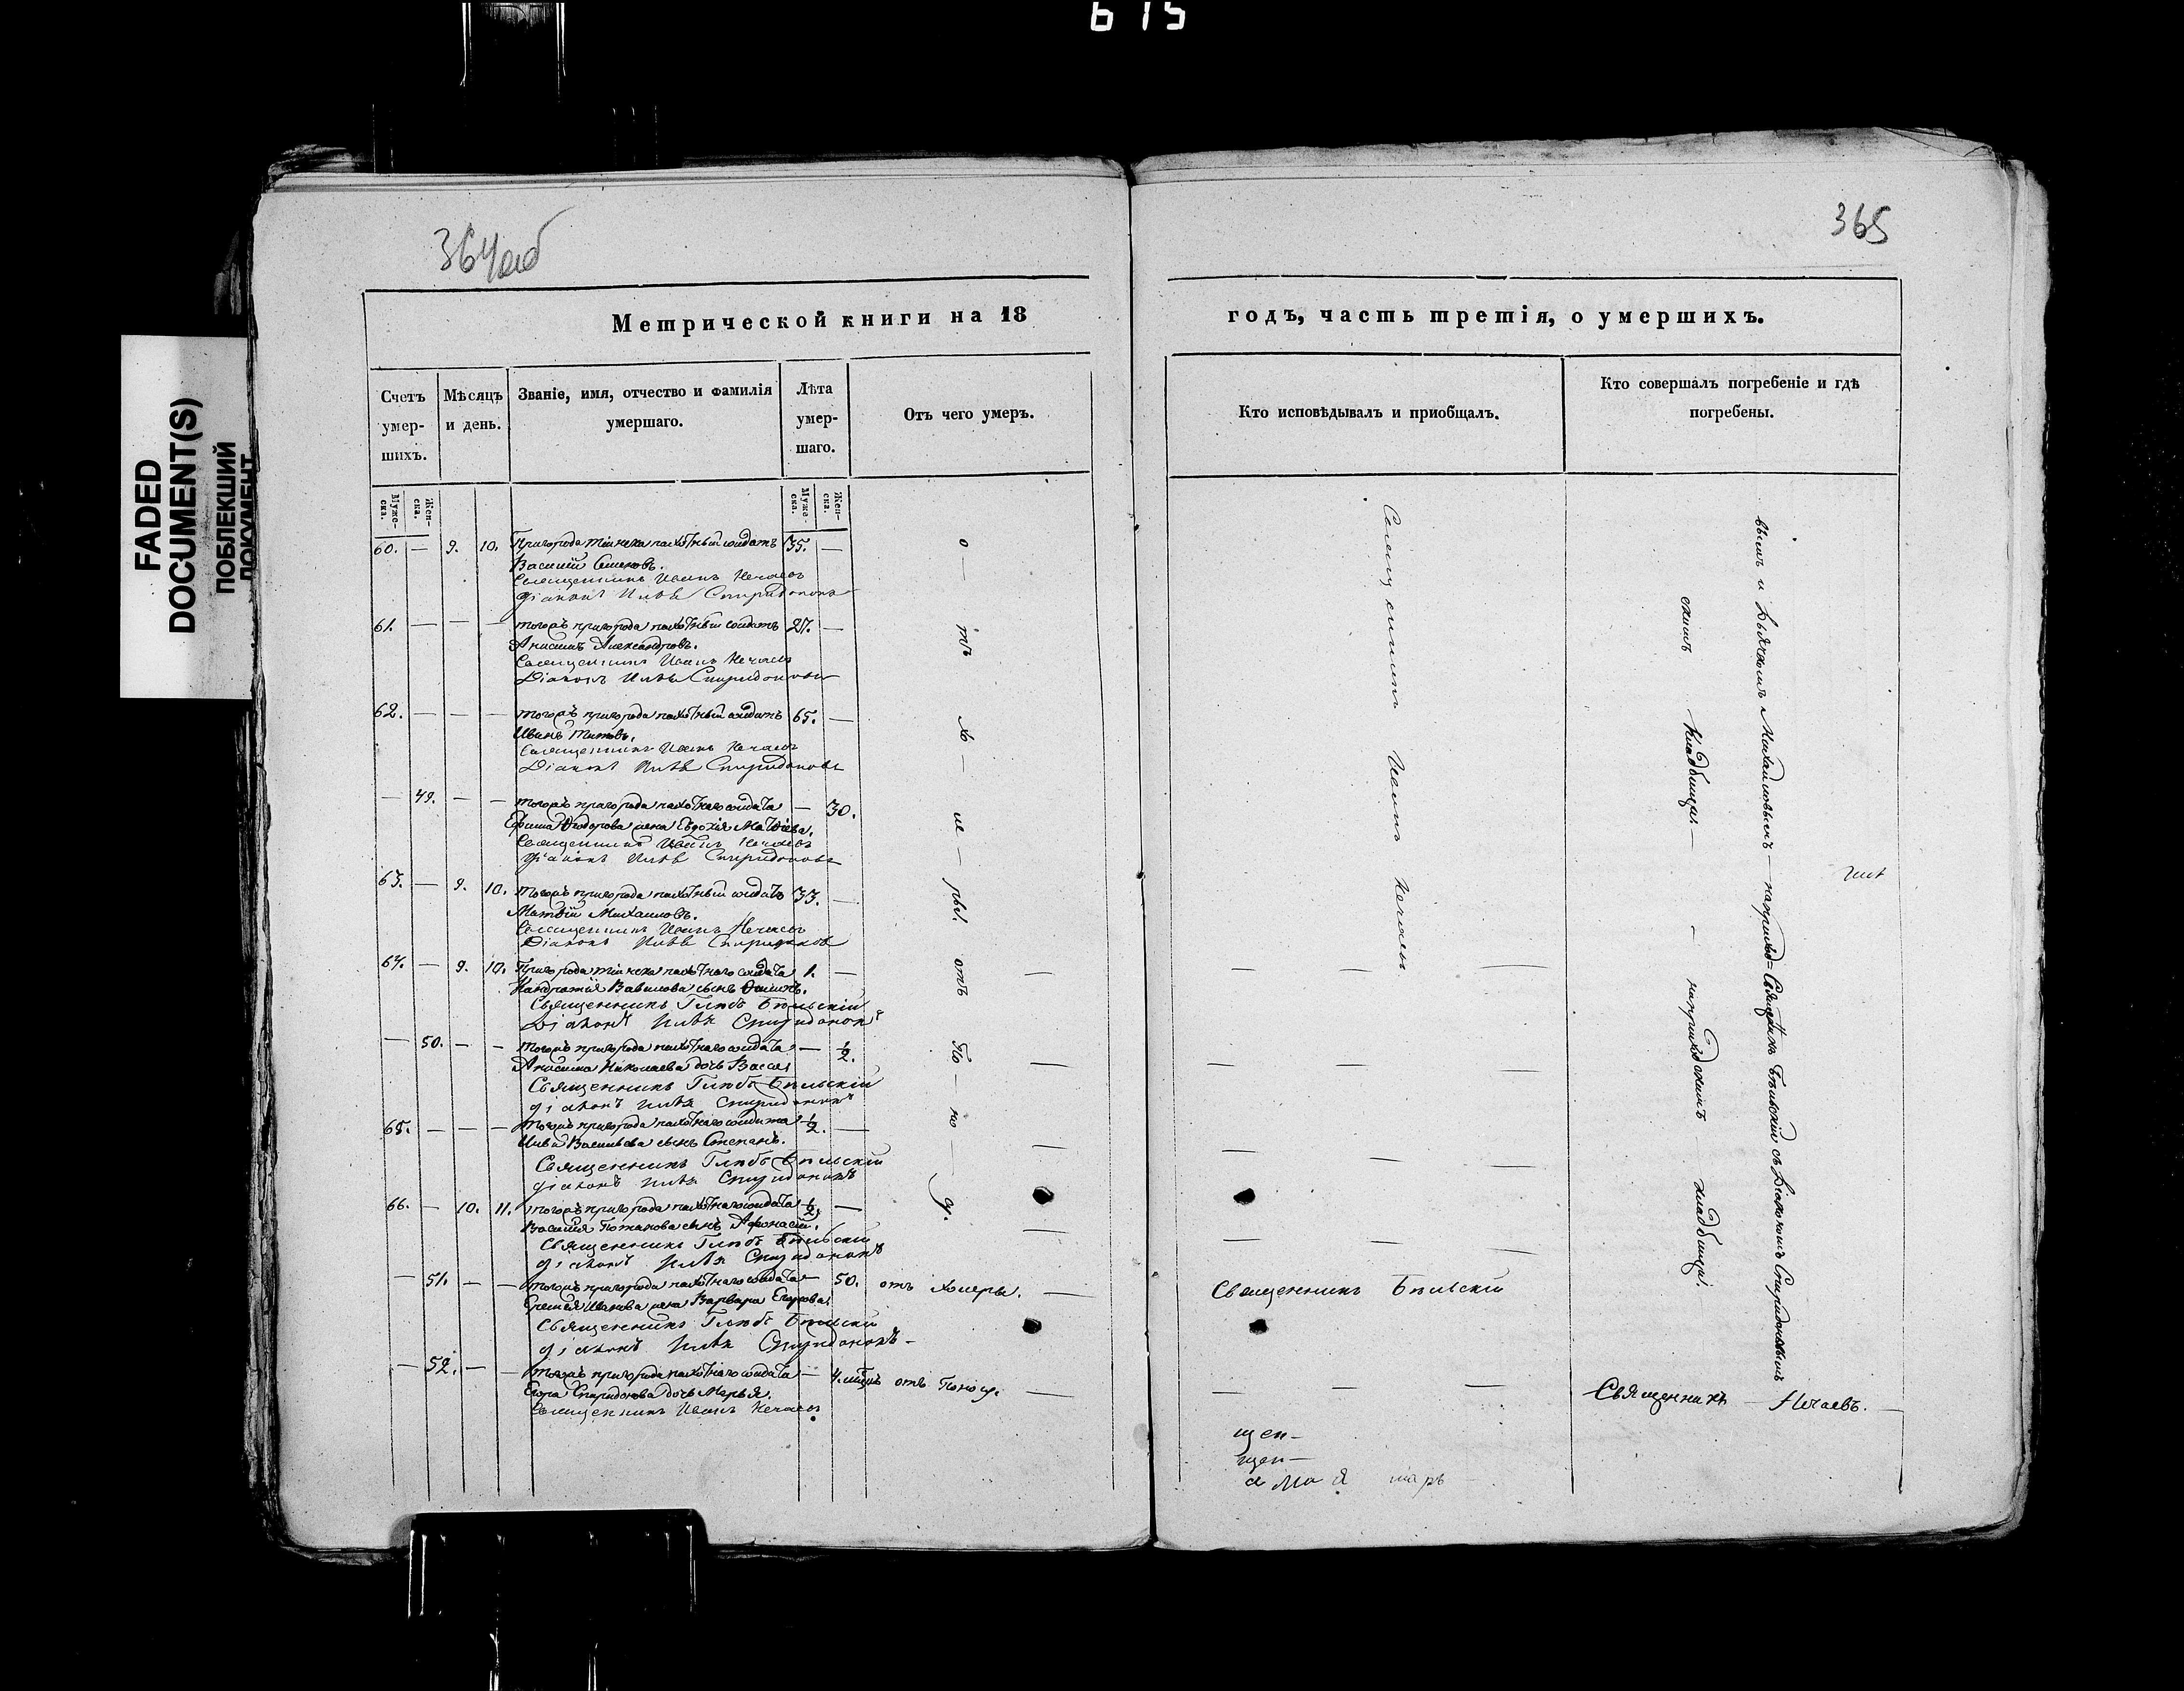 615
FADED
DOCUMENT(S)
ПОБЛЕКШИЙ
ДОКУМЕНТ
364об
365
Метрической книги на 18
годъ, часть третія, о умершихъ.
Счетъ умер-шихъ.
Мѣсяцъ и день.
Званіе, имя, отчество и фамилія умершаго.
Лѣта умер-шаго.
Отъ чего умеръ.
Кто исповѣдывалъ и приобщалъ.
Кто совершалъ погребеніе и гдѣ погребены.
Муже-ска.
Жен-ска.
Муже-ска.
Жен-ска.
60. — 9. 10. Пригорода Тіинска пахотный солдатъ 35. —
Василій Семеновъ.
Священникъ Іоаннъ Нечаевъ
Діаконъ Илья Спиридоновъ
61. — — — тогожъ пригорода пахотный солдатъ 27. —
Анисимъ Александровъ.
Священникъ Іоаннъ Нечаевъ
Діаконъ Илья Спиридоновъ
62. — — — тогожъ пригорода пахотный солдатъ 65. —
Иванъ Титовъ.
Священникъ Іоаннъ Нечаевъ
Діаконъ Илья Спиридоновъ
— 49. — — тогожъ пригорода пахотнаго солдата — 30.
Ефима Ѳедорова жена Евдокія Матвѣева.
Священникъ Іоаннъ Нечаевъ
Діаконъ Илья Спиридоновъ
63. — 9. 10. тогожъ пригорода пахотный солдатъ 33. —
Матвѣй Михаиловъ.
Священникъ Іоаннъ Нечаевъ
Діаконъ Илья Спиридоновъ
64. — 9. 10. Пригорода Тіинска пахотнаго солдата 1. —
Кандратія Вавилова сынъ
Священникъ Глѣбъ Бѣльскій
Діаконъ Илья Спиридоновъ
— 50. — — тогожъ пригорода пахотнаго солдата — ½.
Анисима Николаева дочь Васса
Священникъ Глѣбъ Бѣльскій
діаконъ Илья Спиридоновъ
65. — — — тогожъ пригорода пахотнаго солдата ½. —
Ильи Васильева сынъ Степанъ.
Священникъ Глѣбъ Бѣльскій
діаконъ Илья Спиридоновъ
66. — 10. 11. тогожъ пригорода пахотнаго солдата ½. —
Василія сынъ Афонасій.
Священникъ Глѣбъ Бѣльскій
діаконъ Илья Спиридоновъ
— 51. — — тогожъ пригорода пахотнаго солдата — 50. отъ холеры. —
Еремѣя Иванова жена Варвара Егорова.
Священникъ Глѣбъ Бѣльскій
діаконъ Илья Спиридоновъ
— 52. — — тогожъ пригорода пахотнаго солдата — 4. мѣсцъ отъ Поносу. —
Егора Спиридонова дочь Марья.
Священникъ Іоаннъ Нечаевъ
о — тъ хо — ле — ры.
отъ По — но — су.
Священникъ Іоаннъ Нечаевъ
Священникъ Бѣльскій
вымъ и Дьячкомъ Михаиловымъ — на приход=
скимъ Кладбищѣ. —
Священникъ Бѣльскій съ Діакономъ Спиридоновымъ
— на приходскимъ кладбищѣ.
Священникъ — Нечаевъ. —